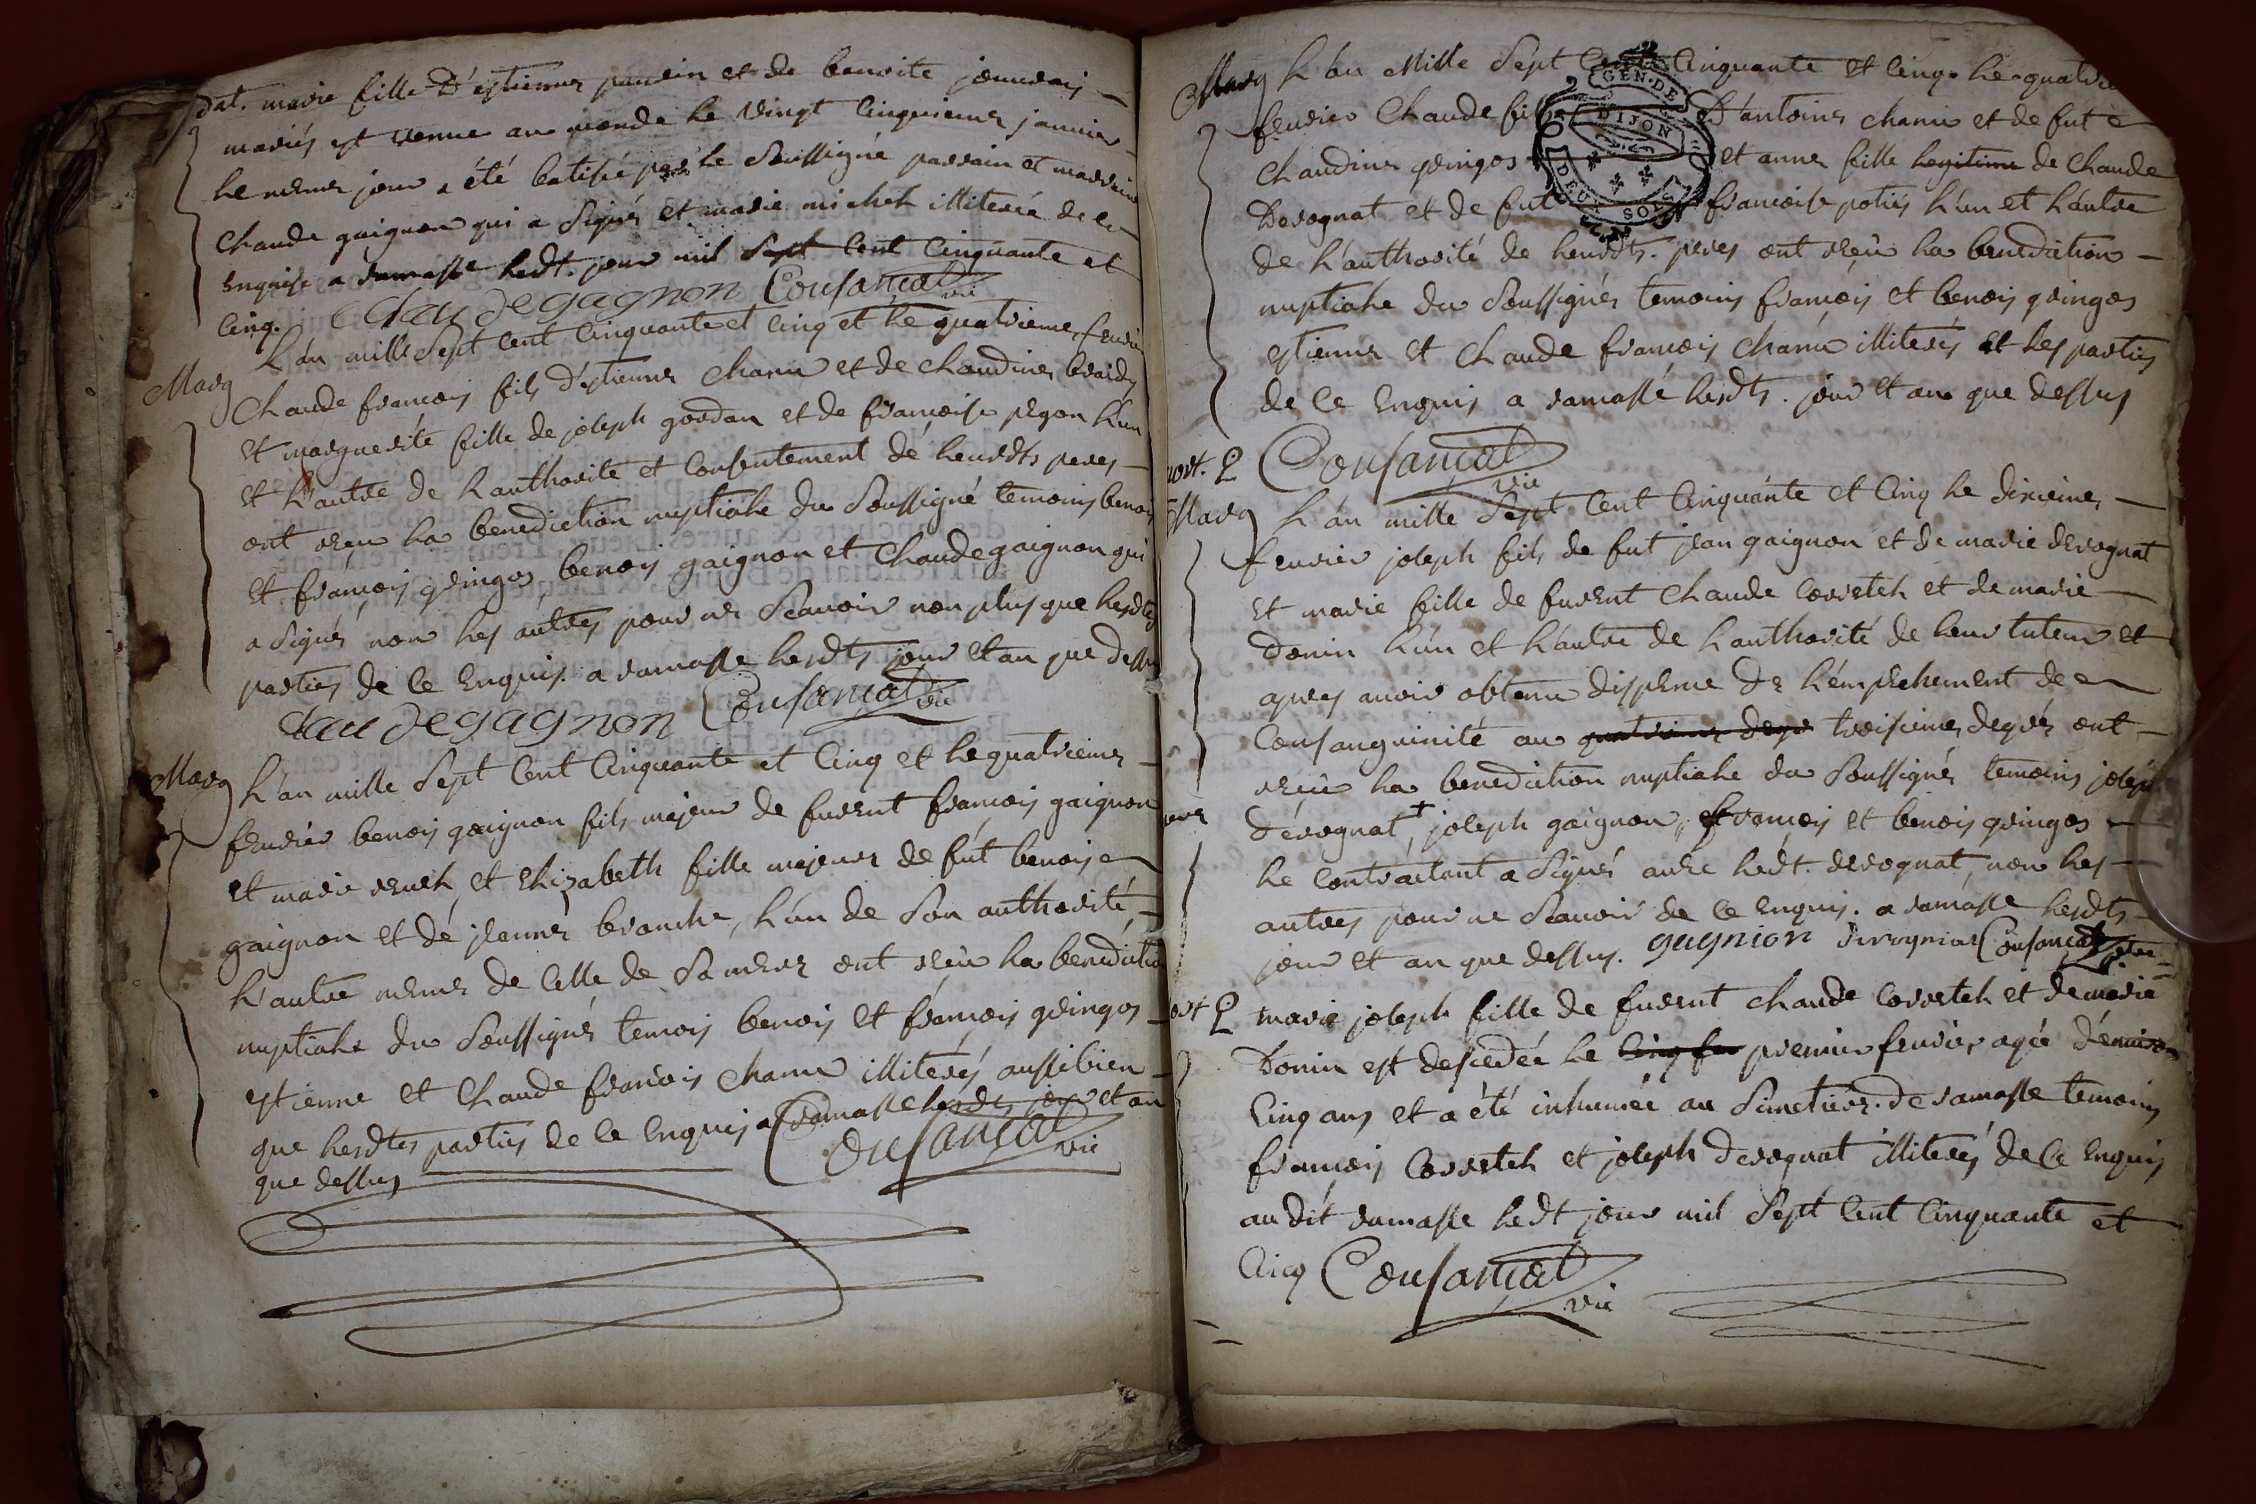 bat. marie fille d'estienne paurin et de benoite jourdan
mariés est venue au monde le vingt cinquieme janvier
le meme jour a été batisée par le soussigné parrain et marraine
claude gaignon qui a signé et marie michel illiterée de ce
enquise a ramasse ledt. jour mil sept cent cinquante et
cinq. claude gagnon Cousançat vic
Marg L'an mille sept cent cinquante et cinq et le quatrieme fevrier
claude françois fils d'estienne chanu et de claudine
et marguerite fille de joseph gordan et de françoise pegon l'un
et l'autre de l'authorité et consentement de leursdts peres
ont reçu la benediction nuptiale du soussigné temoins benois
et françois gringos benois gaignon et claude gaignon qui
a signé non les autres pour ne scavoir non plus que lesdtes
parties de ce enquis. a ramasse lesdts jour et an que dessus
claude gagnon Cousançat vic
Marg L'an mille sept cent cinquante et cinq et le quatrieme
fevrier benois gaignon fils majeur de furent françois gaignon
et marie et elizabeth fille majeure de fut benois
gaignon et de jeanne branche, l'un de son authorité,
l'autre meme de celle de sa mere ont reçu la benediction
nuptiale du soussigné temois benois et françois gringos
estienne et claude françois chanu illiterés aussi bien
que lesdtes parties de ce enquis a ramasse lesdts jour et an
que dessus Cousançat vic
Marg L'an Mille sept cent cinquante et cinq le quatrieme
fevrier claude fils d'antoine chanu et de fut
claudine gringos et anne fille legitime de claude
derognat et de fut françoise l'un et l'autre
GEN. DE DIJON
DEUX SOLS
de l'authorité de leursdts. peres ont reçu la benediction
nuptiale du soussigné temoins françois et benois gringos
estienne et claude françois chanu illiterés et les parties
de ce enquis a ramassé lesdts. jour et an que dessus
Cousançat vic
Marg L'an mille sept cent cinquante et cinq le dixieme
fevrier joseph fils de fut jean gaignon et de marie derognat
et marie fille de furent claude corretel et de marie
donin l'un et l'autre de l'authorité de leur tuteur et
apres avoir obtenu dispense de l'empechement de
consanguinité au quatrieme degré troisieme degré ont
reçu la benediction nuptiale du soussigné temoins joseph
dérognat, joseph gaignon, françois et benois gringos
le contractant a signé avec ledt. derognat, non les
autres pour ne scavoir de ce enquis. a ramasse lesdts
jour et an que dessus. gagnion derognat Cousançat vic
mort marie joseph fille de furent claude corretel et de marie
Donin est desçedée le premier fevrier agée d'environ
cinq ans et a été inhumée au simetiere de ramasse temoins
françois corretel et joseph derognat illiterés de ce enquis
au dit ramasse ledt jour mil sept cent cinquante et
cinq Cousançat vic